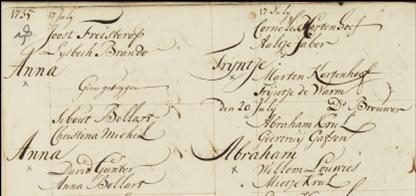 1735 17 July
Joost Freisterof
Lysbeth Brando
Anna
Gien getuygen
Sibout Bollart
Christina Michel
Anna
David Gunter
Anna Bollart
17 July
Cornelis Kortenhoef
Aaltje Faber
Fryntje
Marten Kortenhoef
Fryntje de Warm
den 20 July Ds Brouwer
Abraham Krul
Geertruy Gassen
Abraham
Willem Louwies
Meetje Krul